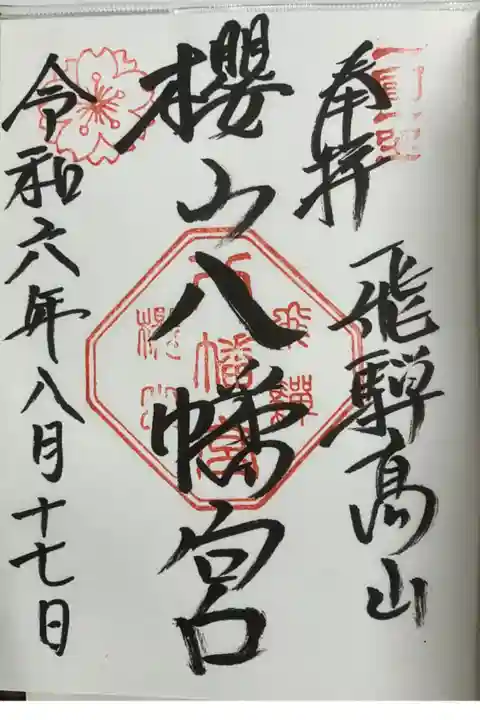 奉拝
飛騨高山
櫻山八幡宮
飛騨
八幡宮
櫻山
令和六年八月十七日